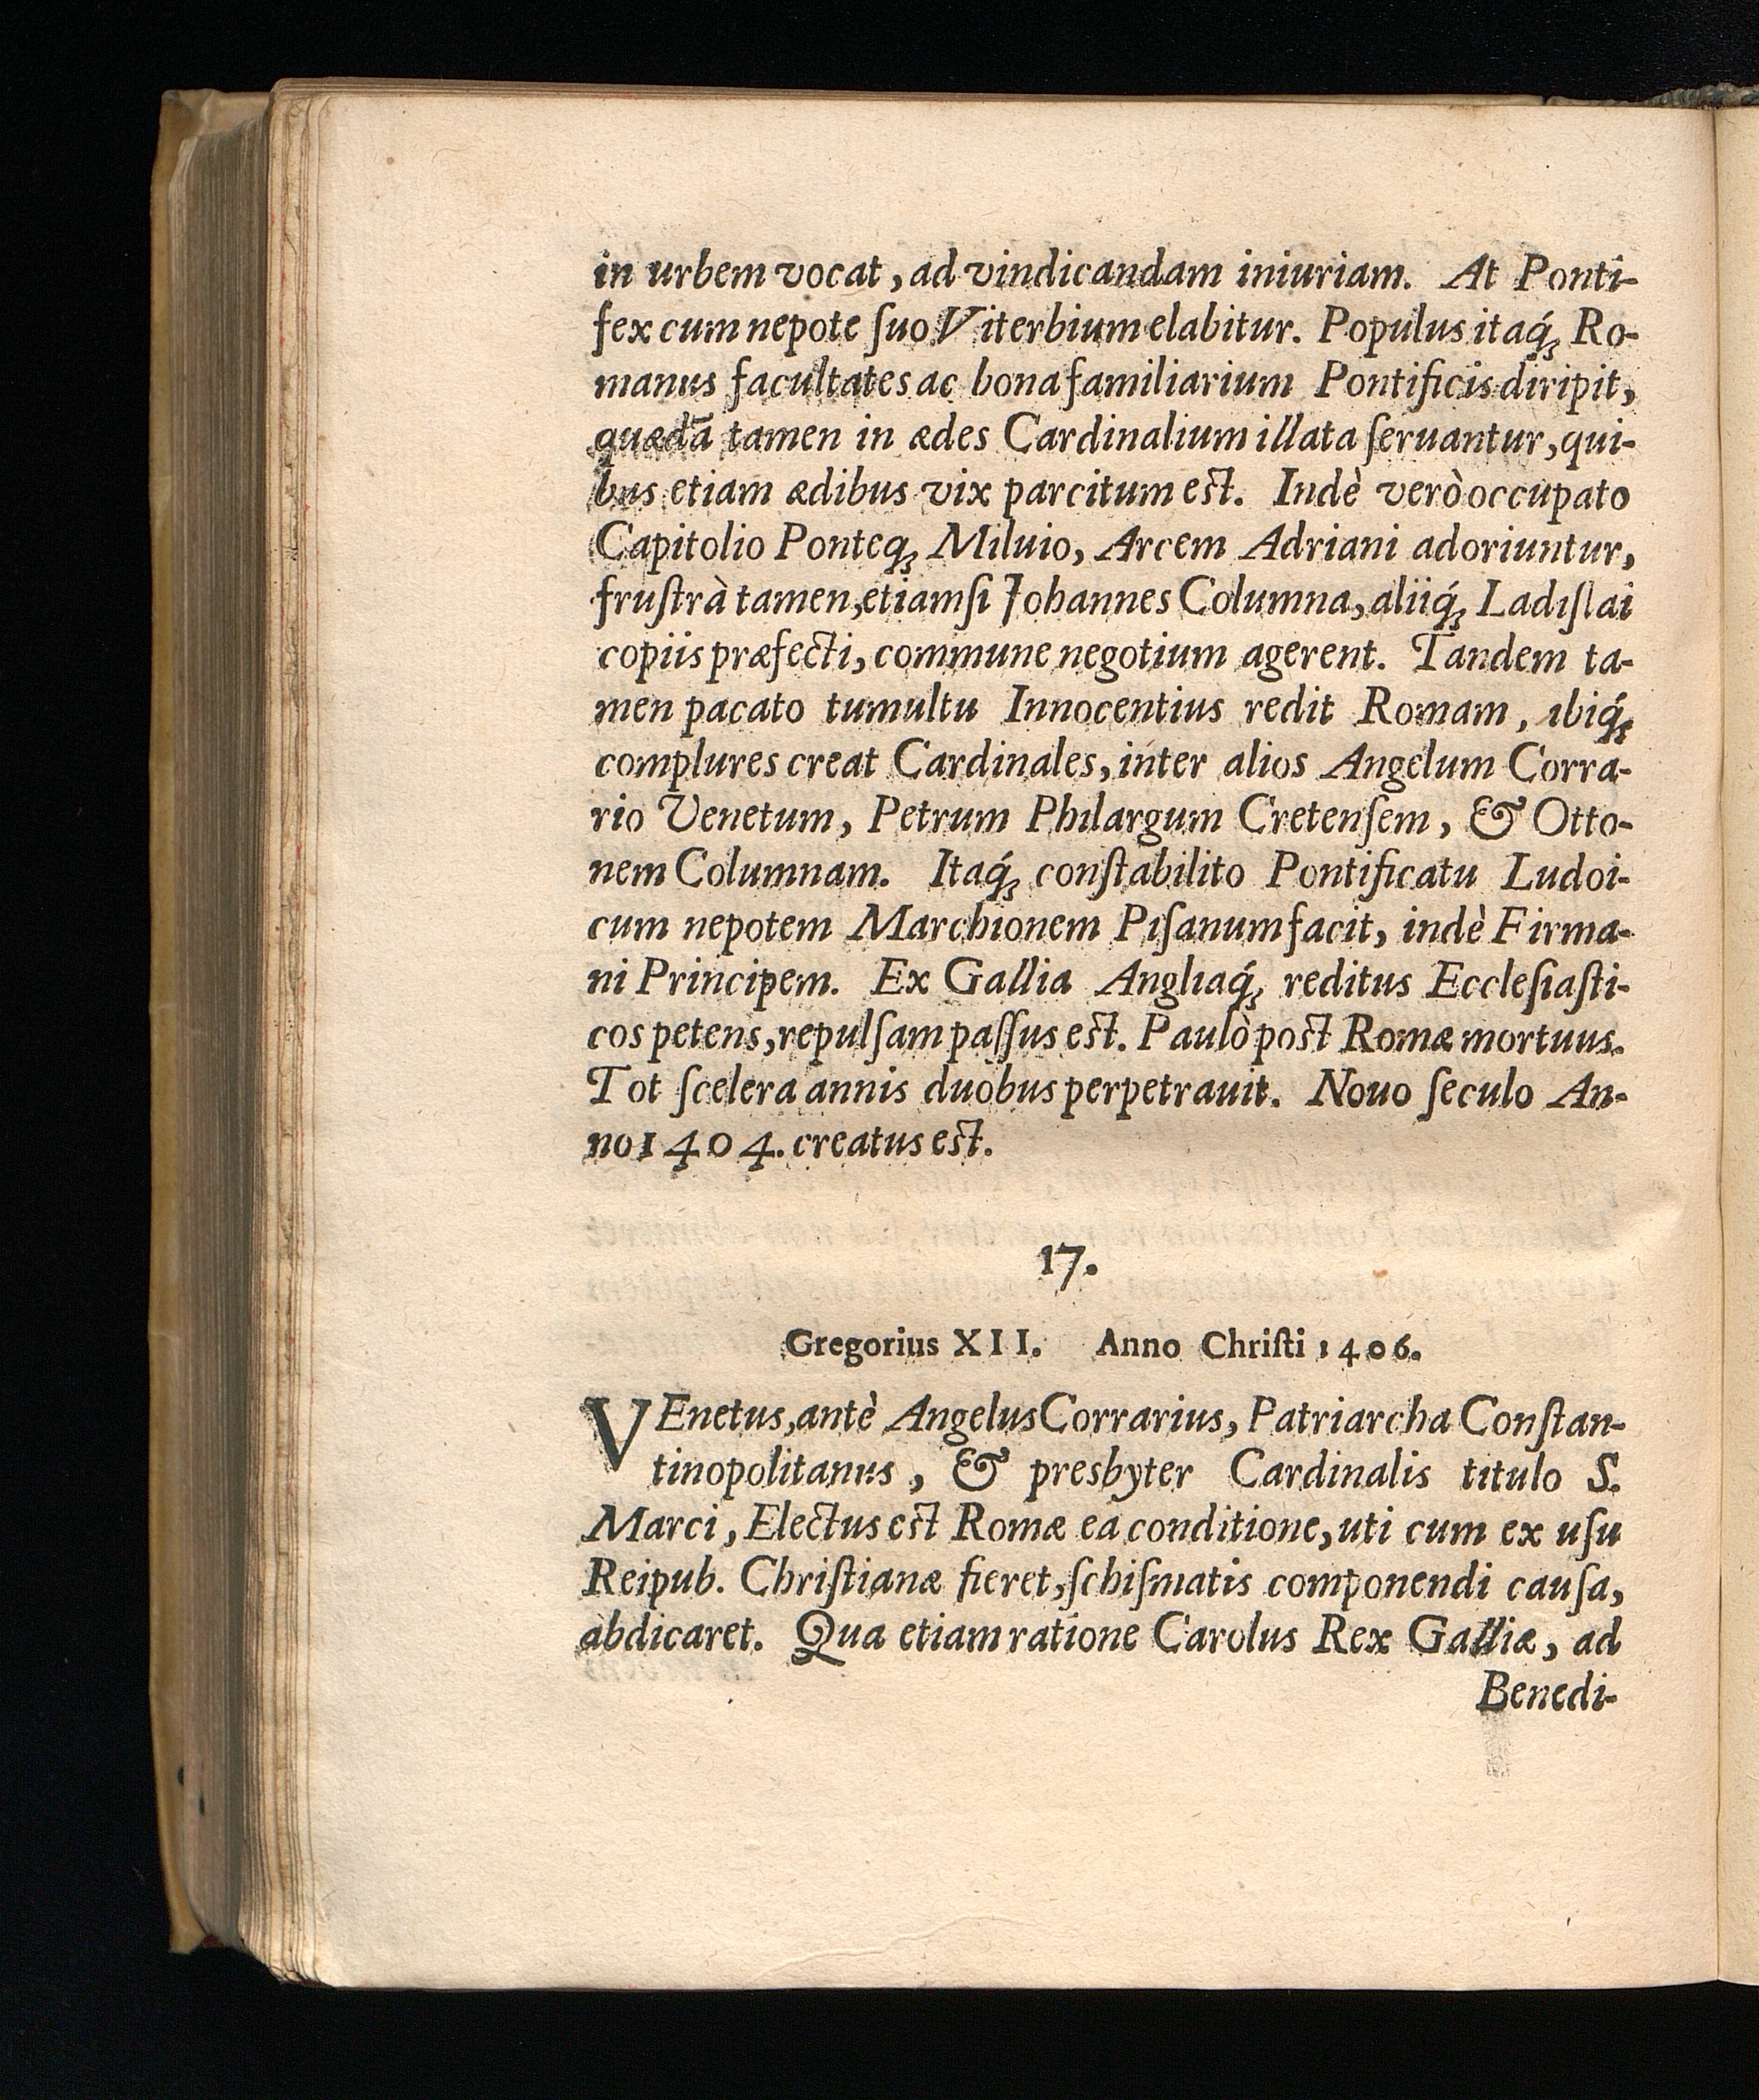 in urbem vocat, ad vindicandam iniuriam. At Ponti-
fex cum nepote ſuo Viterbium elabitur. Populus itaq́ꝫ Ro-
manus facultates ac bona familiarium Pontificis diripit,
quædã tamen in ædes Cardinalium illata ſeruantur, qui-
bus etiam ædibus vix parcitum est. Indè verò occupato
Capitolio Ponteqꝫ Miluio, Arcem Adriani adoriuntur,
fruſtrà tamen, etiamſi Johannes Columna, aliiq́ꝫ Ladiſlai
copiis præfecti, commune negotium agerent. Tandem ta-
men pacato tumultu Innocentius redit Romam, ibiq́ꝫ
complures creat Cardinales, inter alios Angelum Corra-
rio Venetum, Petrum Philargum Cretenſem, & Otto-
nem Columnam. Itaq́ꝫ conſtabilito Pontificatu Ludoi-
cum nepotem Marchionem Piſanum facit, indè Firma-
ni Principem. Ex Gallia Angliaq́ꝫ reditus Eccleſiaſti-
cos petens, repulſam paſſus est. Paulò post Romæ mortuus.
Tot ſcelera annis duobus perpetrauit. Nouo ſeculo An-
no 1404. creatus est.
17.
Gregorius XII. Anno Chriſti 1406.
VEnetus, antè Angelus Corrarius, Patriarcha Conſtan-
tinopolitanus, & presbyter Cardinalis titulo S.
Marci, Electus est Romæ ea conditione, uti cum ex uſu
Reipub. Chriſtianæ fieret, ſchiſmatis componendi cauſa,
abdicaret. Qua etiam ratione Carolus Rex Galliæ, ad
Benedi-